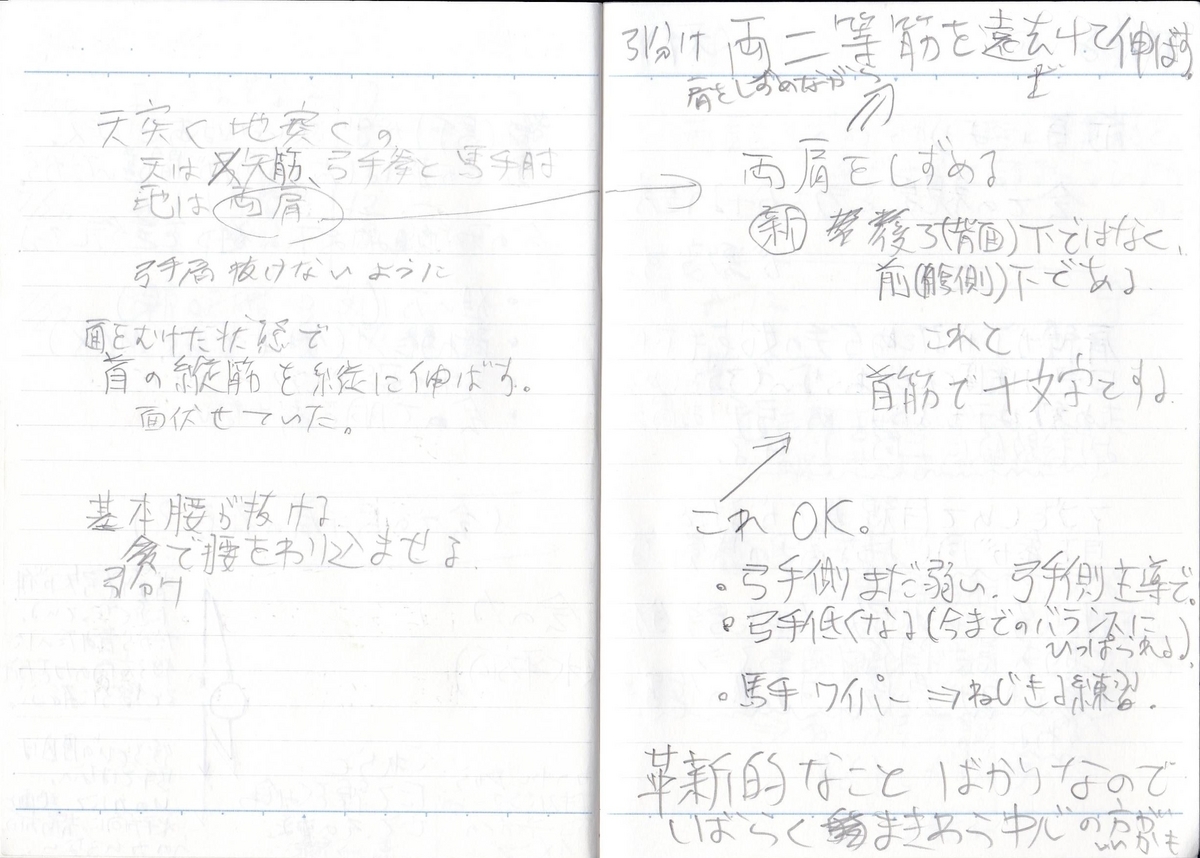 天突く地突くの
天は矢筋、弓手拳と馬手肘
地は両肩
弓手肩抜けないように
面をむけた状態で
首の縦筋を縦に伸ばす。
面伏せていた。
基本腰が抜ける
会で腰をわり込ませる
引分け
引分け 両二等筋を遠去けて伸ばす。
ざ
肩をしずめながら
両肩をしずめる
新 後ろ(背面)下ではなく、
前(腹側)下である
これと
首筋で十文字です。
これOK。
・弓手側まだ弱い。弓手側主導で。
・弓手低くなる(今までのバランスに
ひっぱられる。)
・馬手ワイパー⇒ねじきる練習。
革新的なことばかりなので
しばらくまきわら中心の方が
いいかも